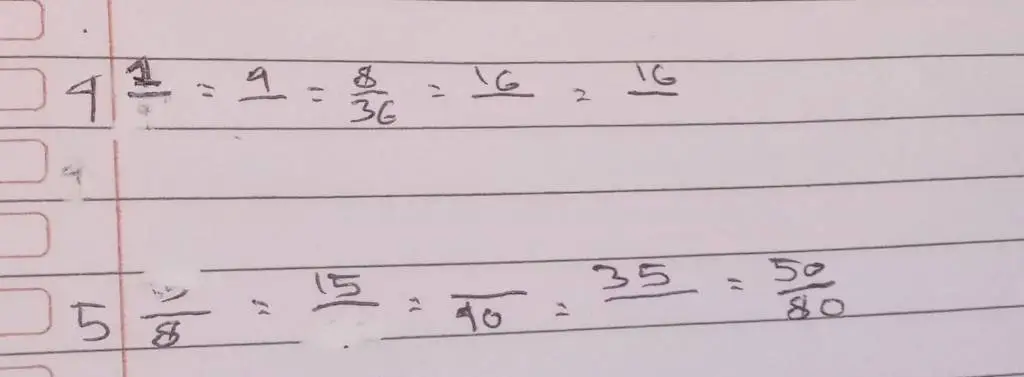 4 1/ = 4/ = 8/36 = 16/ = 16/
5 /8 = 15/ = /40 = 35/ = 50/80